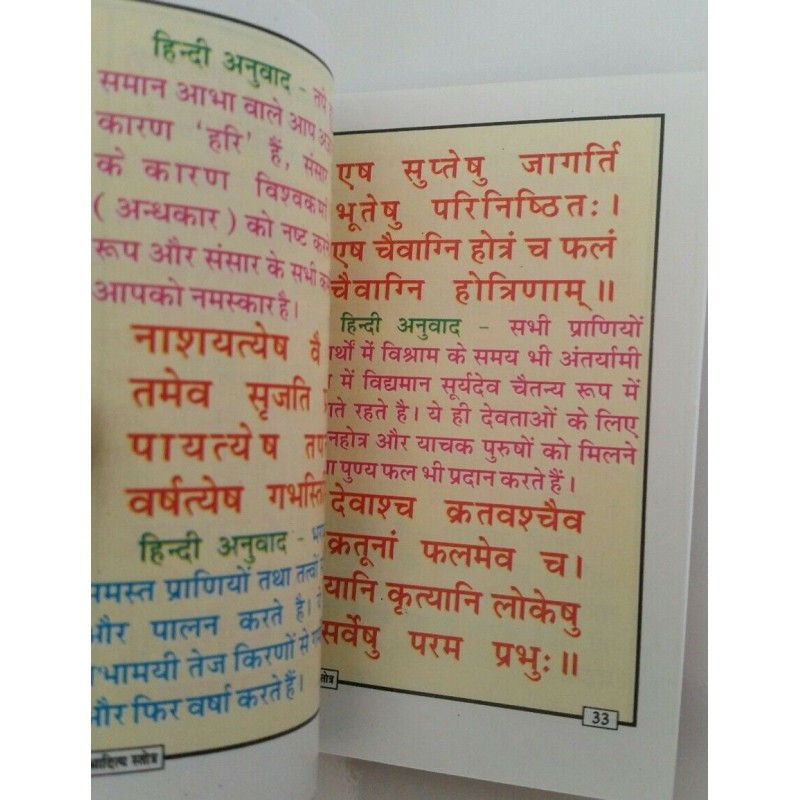 हिन्दी अनुवाद -
समान आभा वाले आप
कारण 'हरि' हैं,
के कारण
( अन्धकार ) को नष्ट
रूप और संसार के सभी
आपको नमस्कार है।
नाशयत्येष वै
तमेव सृजति
पायत्येष
वर्षत्येष
हिन्दी अनुवाद -
प्राणियों तथा तत्वों
और पालन करते है।
तेज किरणों से
और फिर वर्षा करते हैं।
स्तोत्र
एष सुप्तेषु जागर्ति
भूतेषु परिनिष्ठितः।
एष चैवाग्नि होत्रं च फलं
चैवाग्नि होत्रिणाम्॥
हिन्दी अनुवाद - सभी प्राणियों
में विश्राम के समय भी अंतर्यामी
में विद्यमान सूर्यदेव चैतन्य रूप में
रहते है। ये ही देवताओं के लिए
और याचक पुरुषों को मिलने
पुण्य फल भी प्रदान करते हैं।
देवाश्च क्रतवश्चैव
क्रतूनां फलमेव च।
यानि कृत्यानि लोकेषु
सर्वेषु परम प्रभुः॥
33